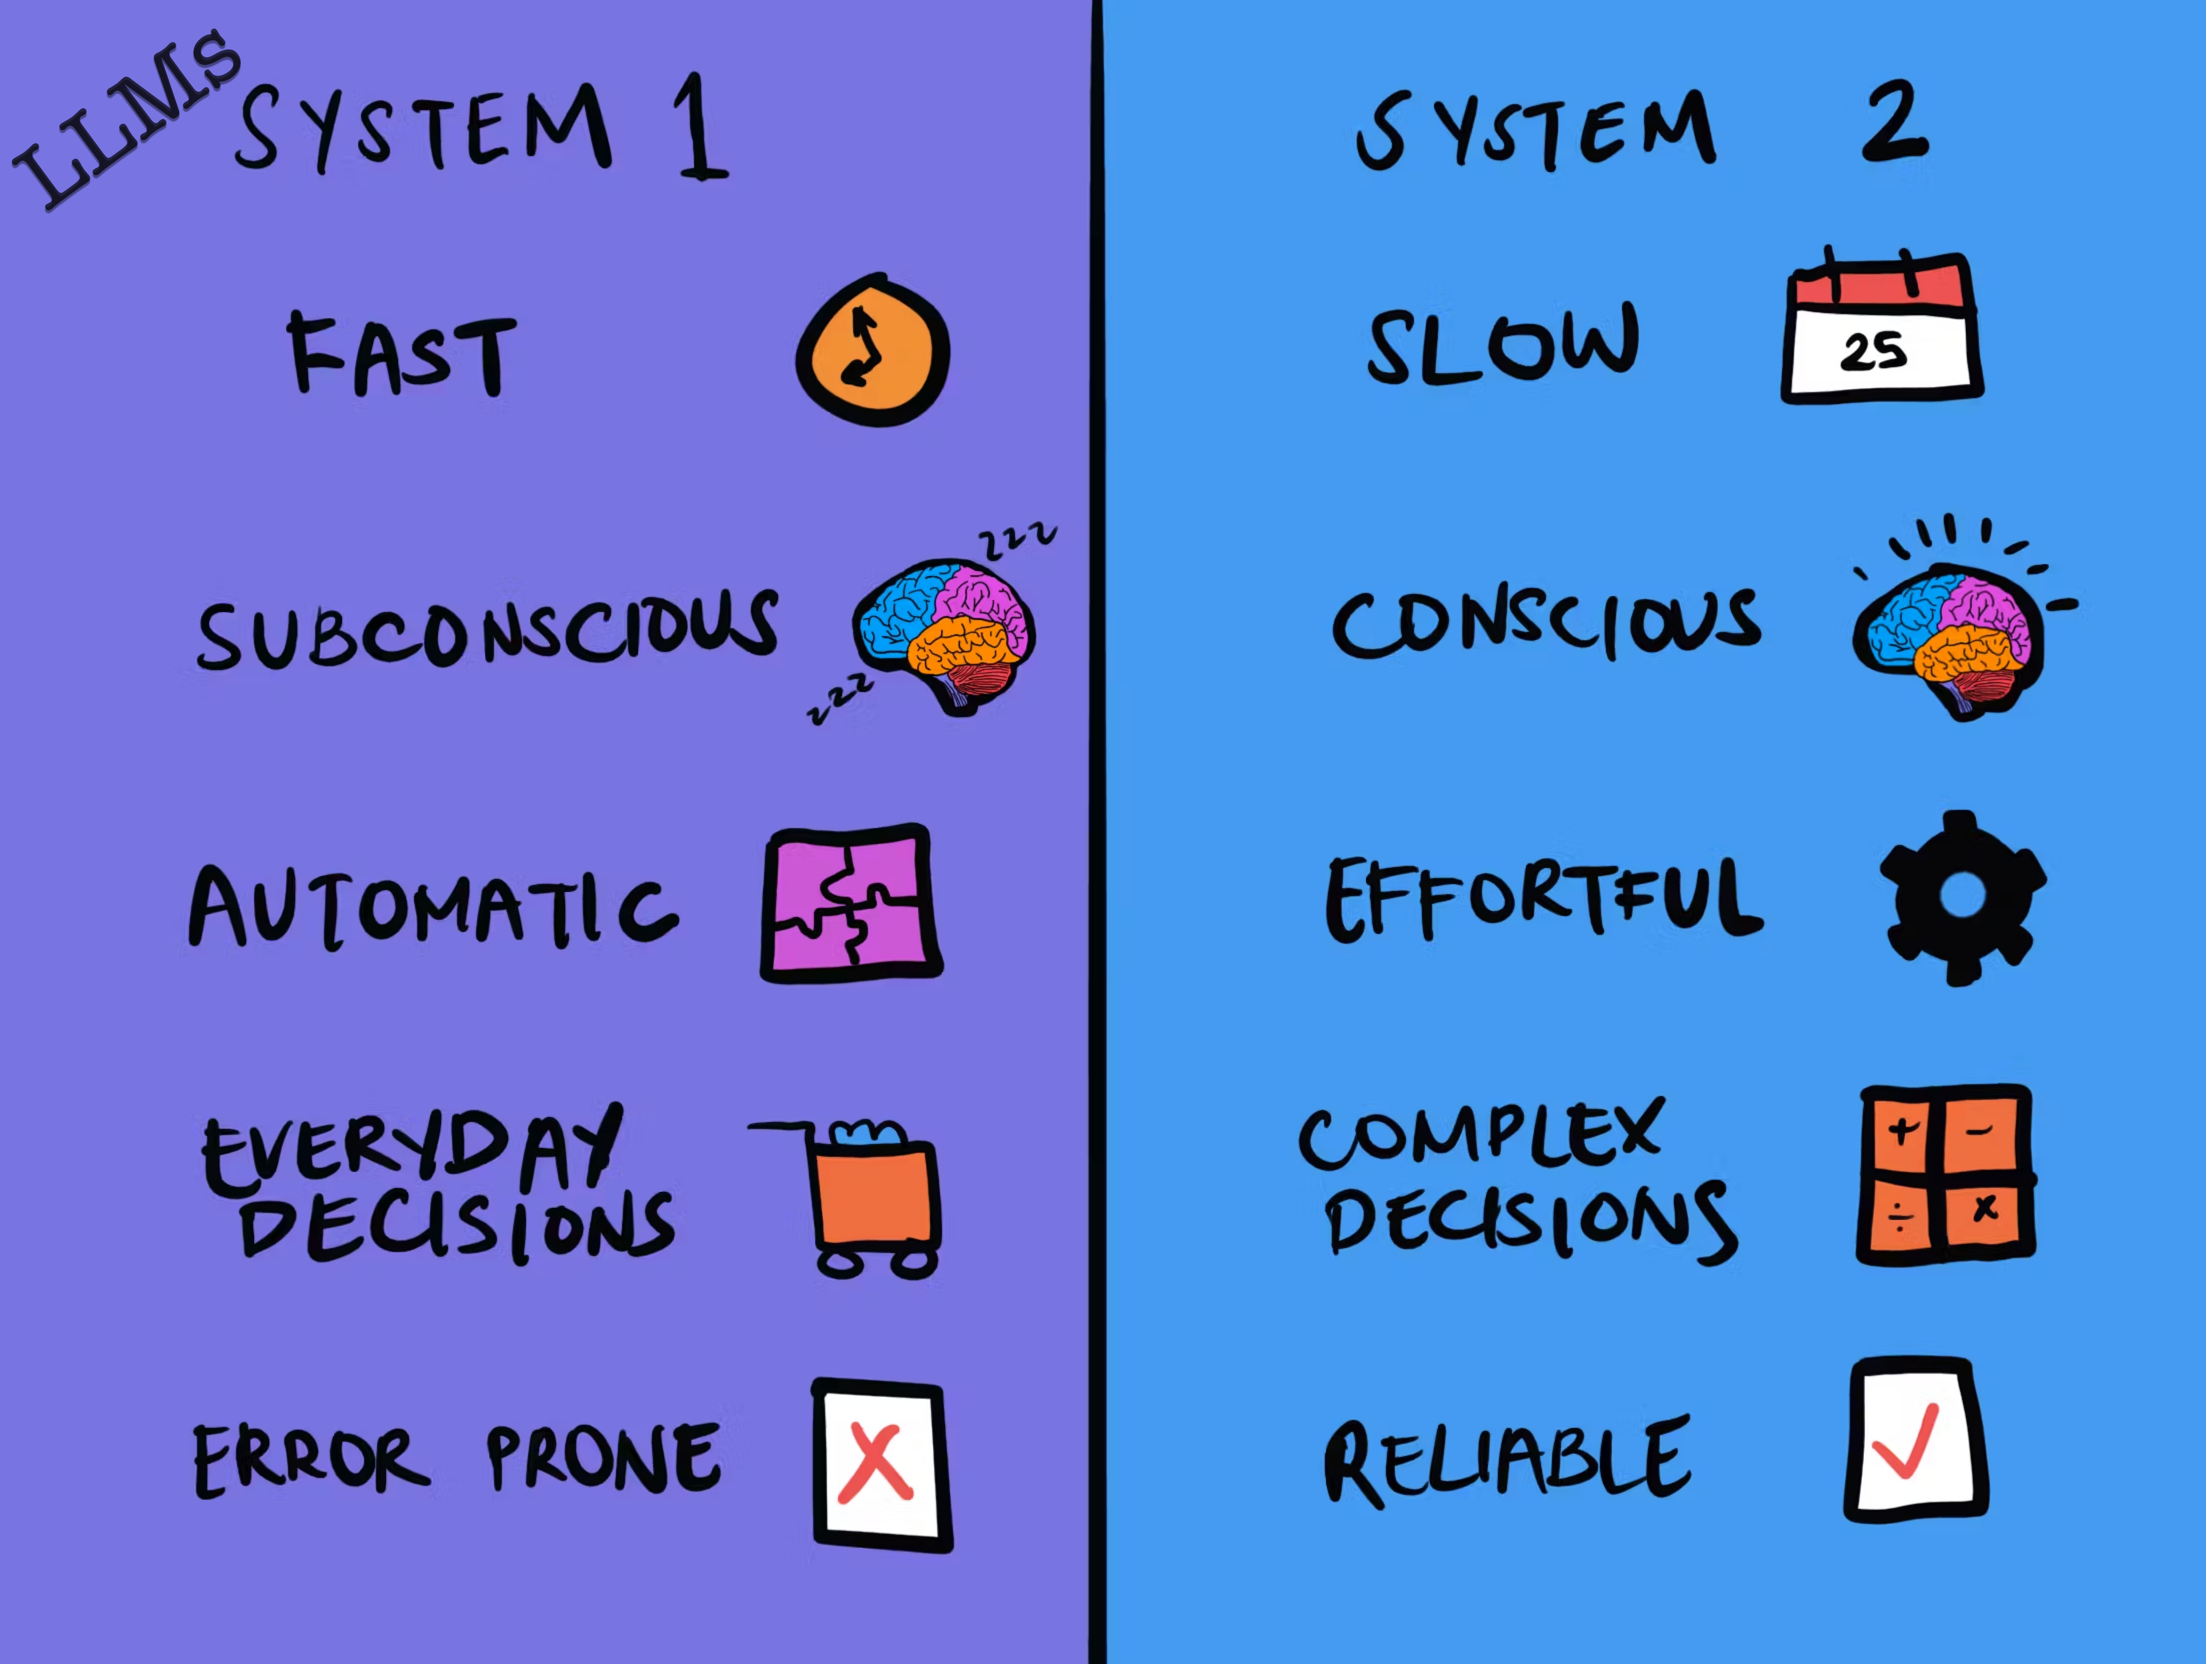 LLMs
SYSTEM 1
FAST
SUBCONSCIOUS
zzz
zzz
AUTOMATIC
EVERYDAY
DECISIONS
ERROR PRONE
X
SYSTEM 2
SLOW
25
CONSCIOUS
EFFORTFUL
COMPLEX
DECISIONS
+ -
÷ x
RELIABLE